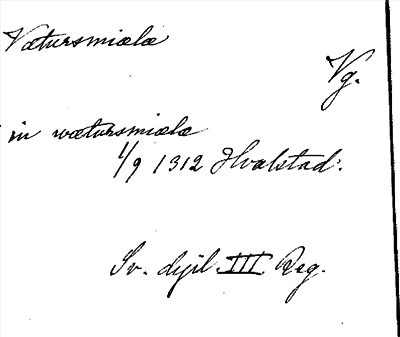 Vætursmiælæ
Vg.
in wætursmiælæ
1/9 1312 Hvalstad:.
Sv. dipl. III. Reg.